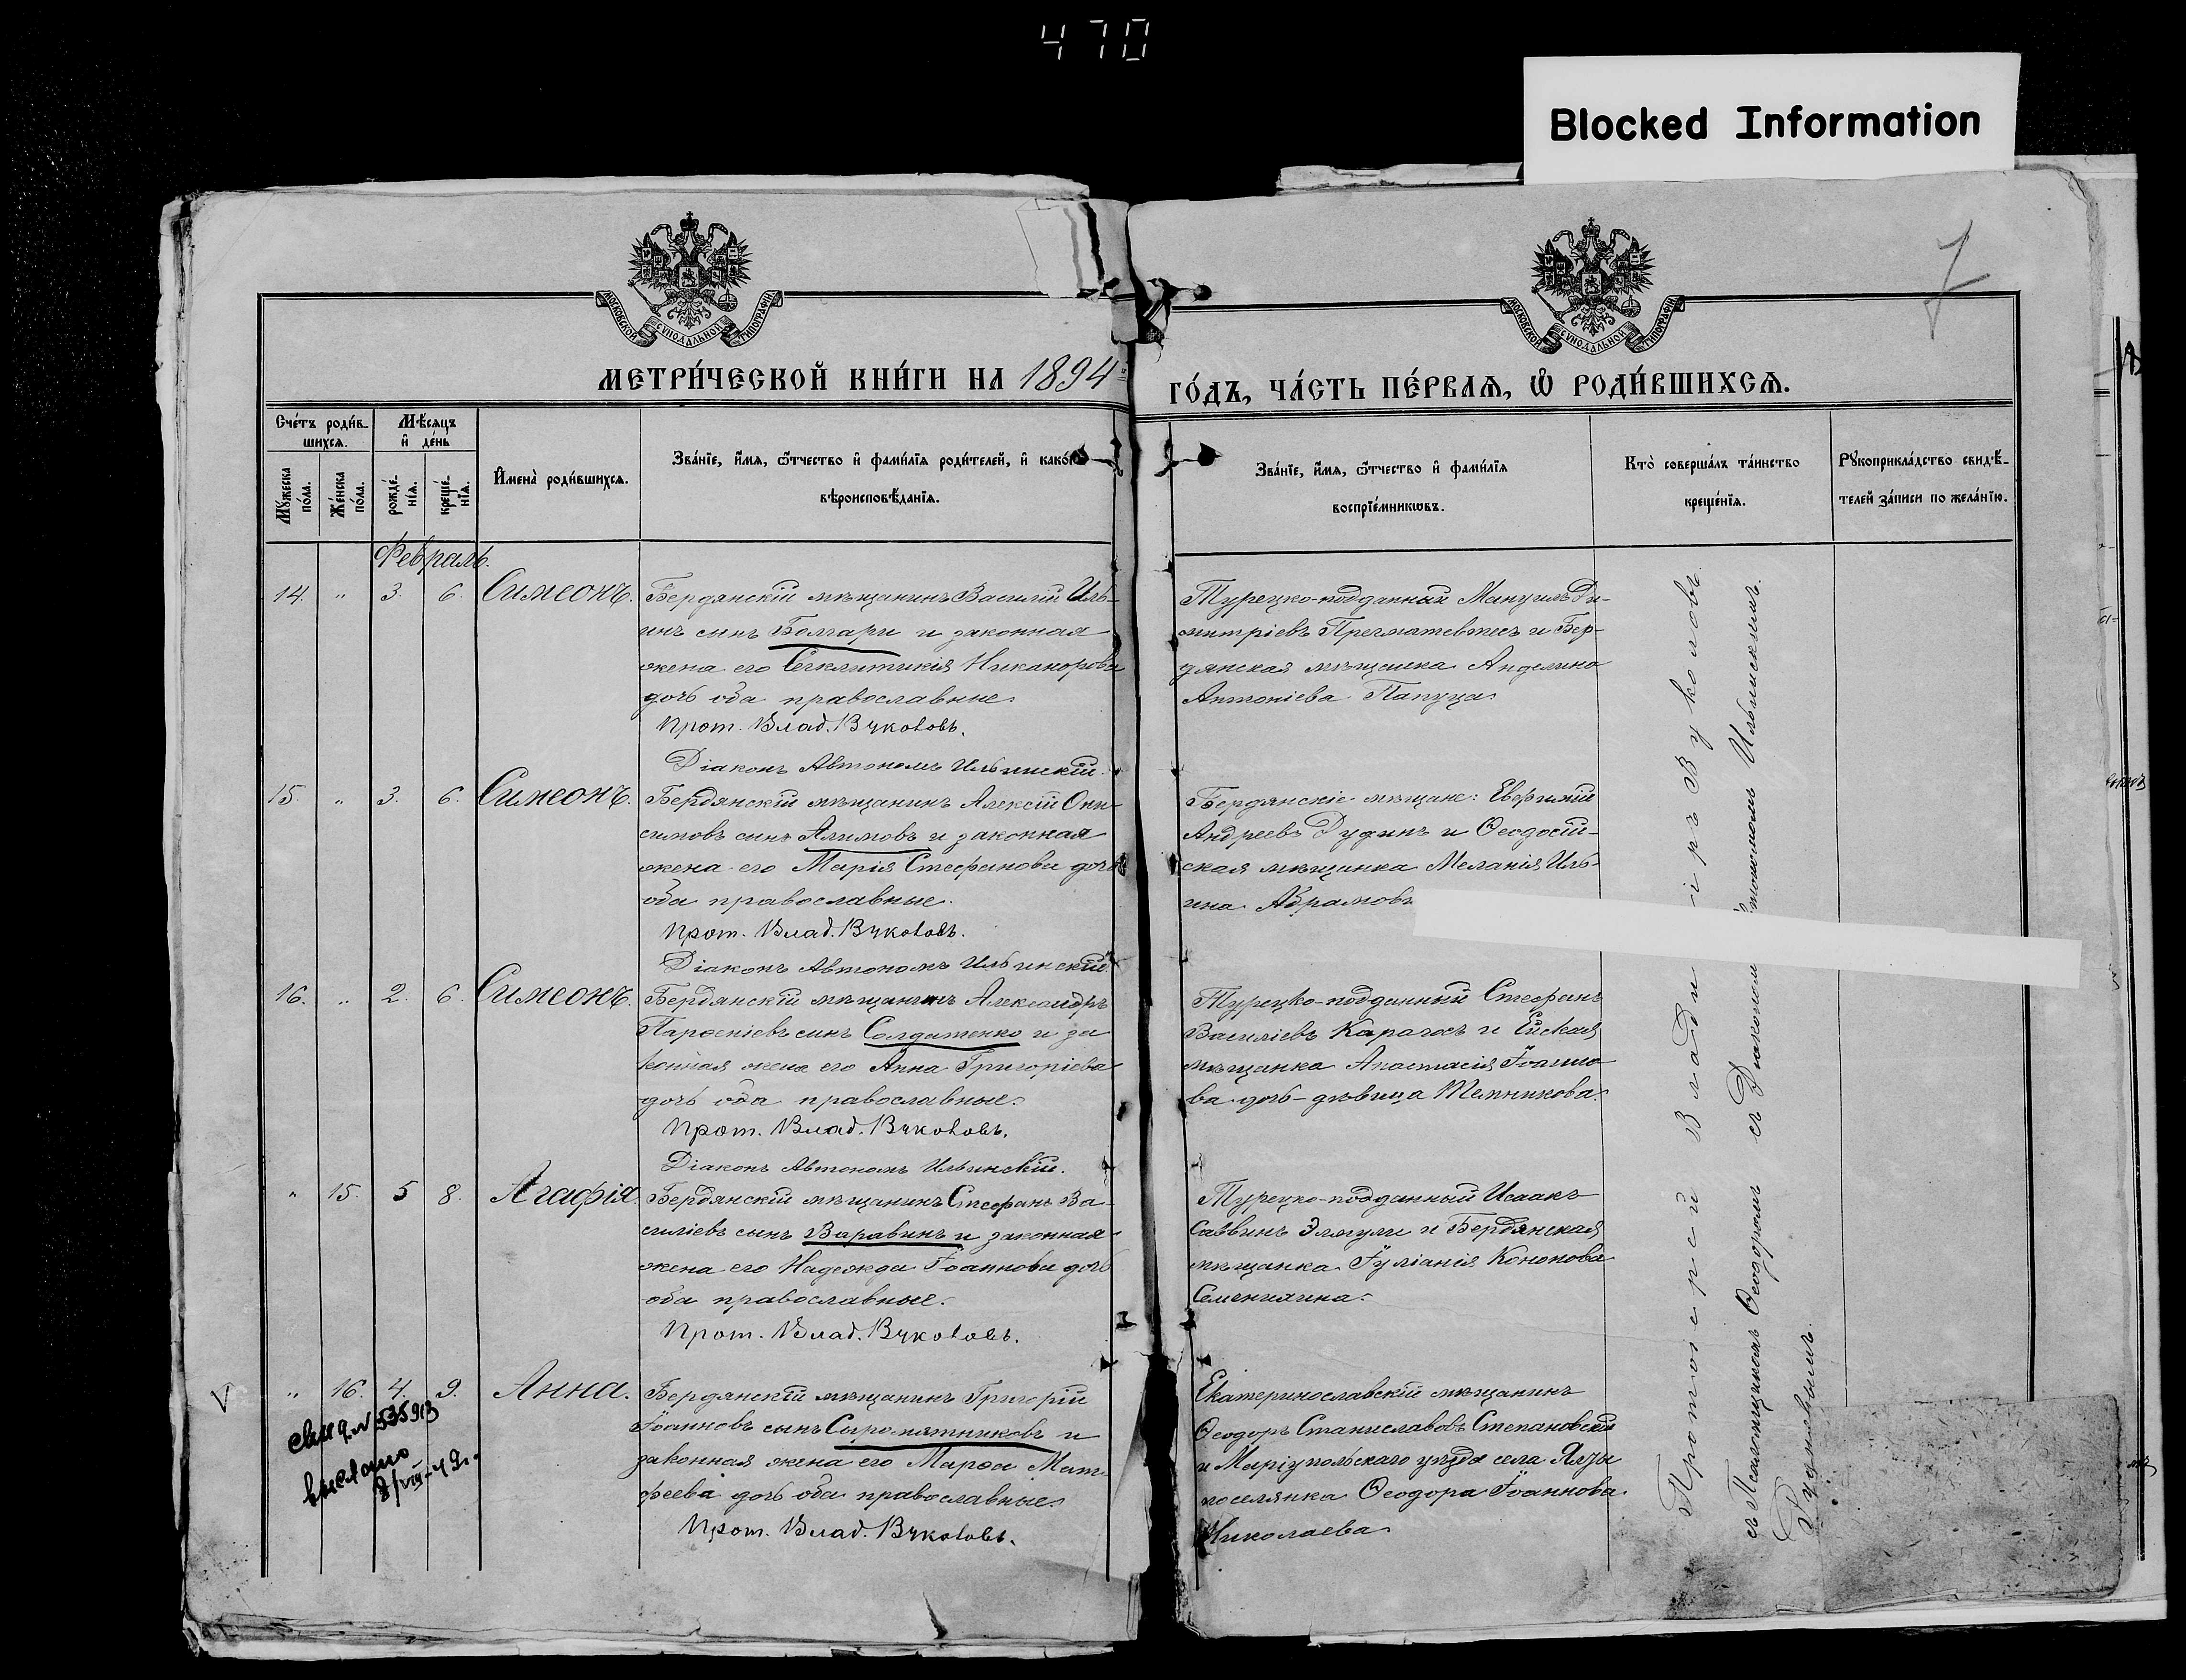 470
Blocked Information
7
МОСКОВСКОЙ СУНОДАЛЬНОЙ ТИПОГРАФІИ
МОСКОВСКОЙ СУНОДАЛЬНОЙ ТИПОГРАФІИ
МЕТРИ́ЧЕСКОЙ КНИ́ГИ НА 1894 й
ГО́ДЪ, ЧА́СТЬ ПЕ́РВАѦ, Ѽ РОДИ́ВШИХСѦ.
Сче́тъ роди́в-
шихсѧ.
Мѣ́сѧцъ
и҆ де́нь
Мꙋ́жеска
по́ла.
Же́нска
по́ла.
рожде́-
нїѧ.
креще́-
нїѧ.
И҆мена̀ роди́вшихсѧ.
Зва́нїе, и҆́мѧ, ѻ҆́тчество и҆ фами́лїѧ роди́телей, и҆ како́гѡ
вѣроисповѣ́данїѧ.
Зва́нїе, и҆́мѧ, ѻ҆́тчество и҆ фами́лїѧ
воспрїе́мникѡвъ.
Кто̀ соверша́лъ та́инство
креще́нїѧ.
Рꙋкоприкла́дство свидѣ́-
телей за́писи по жела́нїю.
Февраль.
14. " 3. 6. Симеонъ. Бердянскій мѣщанинъ Василій Иль-
инъ сынъ Болгари и законная
жена его Сегклитикія Никанорова
дочь оба православные.
Прот. Влад. Вуколовъ.
Діаконъ Автономъ Ильинскій.
Турецко-подданный Мануилъ Ди-
митріевъ Прегматевтесъ и Бер-
дянская мѣщанка Анделина
Антоніева Папуца.
15. " 3. 6. Симеонъ. Бердянскій мѣщанинъ Алексій Они-
симовъ сынъ Алимовъ и законная
жена его Марія Стефанова дочь
оба православные.
Прот. Влад. Вуколовъ.
Діаконъ Автономъ Ильинскій.
Бердянскіе мѣщане: Евфимій
Андреевъ Дудинъ и Ѳеодосій-
ская мѣщанка Меланія Иль-
ина Абрамов
16. " 2. 6. Симеонъ. Бердянскій мѣщанинъ Александръ
Парѳеніевъ сынъ Солдатенко и за
конная жена его Анна Григоріева
дочь оба православные.
Прот. Влад. Вуколовъ.
Діаконъ Автономъ Ильинскій.
Турецко-подданный Стефанъ
Василіевъ Карагосъ и Ейская
мѣщанка Анастасія Іоанно
ва дочь-дѣвица Темникова.
" 15. 5 8. Агафія. Бердянскій мѣщанинъ Стефанъ Ва-
силіевъ сынъ Варавинъ и законная
жена его Надежда Іоаннова дочь
оба православные.
Прот. Влад. Вуколовъ.
Турецко-подданный Исаакъ
Саввинъ Элмули и Бердянская
мѣщанка Іуліанія Кононова
V " 16. 4. 9. Анна. Бердянскій мѣщанинъ Григорій
Іоанновъ сынъ Сыромятниковъ и
законная жена его Марѳа Мат-
феева дочь оба православные.
Прот. Влад. Вуколовъ.
выслано
8/VIII-49г.
Екатеринославскій мѣщанинъ
Ѳеодоръ Станиславовъ Степановскій
и Маріупольскаго уѣзда села Ялты
поселянка Ѳеодора Іоаннова
Николаева
Протоіерей Владиміръ Вуколовъ
съ Псаломщикомъ Ѳеодоромъ съ Діакономъ Автономомъ Ильинскимъ.